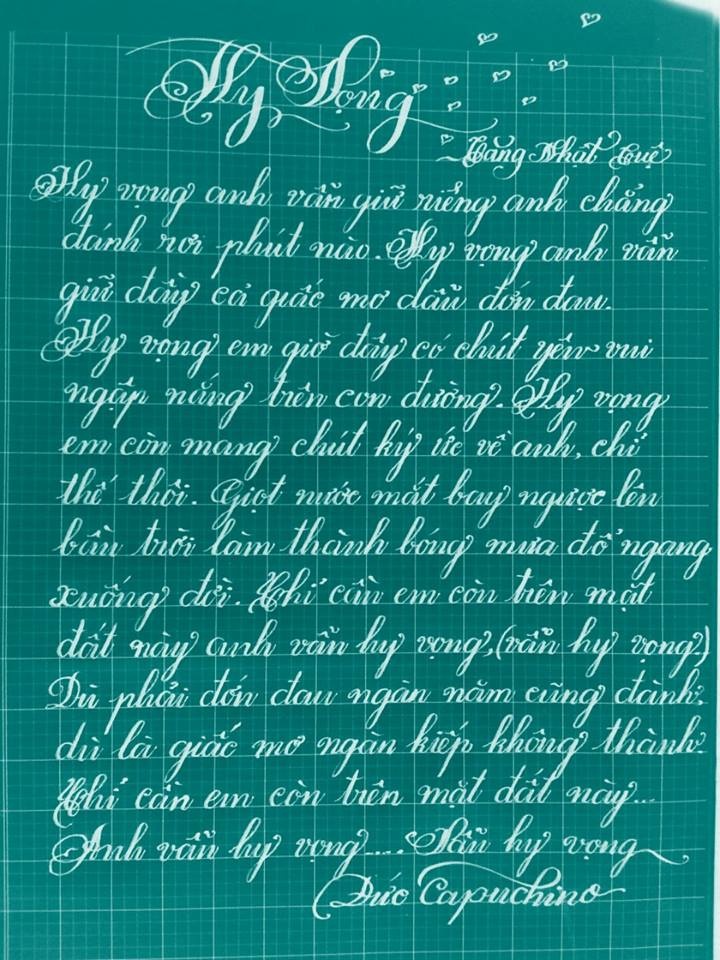 Hy Vọng
Tăng Nhật Tuệ
Hy vọng anh vẫn giữ riêng anh chẳng
đánh rơi phút nào. Hy vọng anh vẫn
giữ đầy cả giấc mơ dẫu đớn đau.
Hy vọng em giờ đây có chút yên vui
ngập nắng trên con đường. Hy vọng
em còn mang chút ký ức về anh, chỉ
thế thôi. Giọt nước mắt bay ngược lên
bầu trời làm thành bóng mưa đổ ngang
xuống đời. Chỉ cần em còn trên mặt
đất này anh vẫn hy vọng, (vẫn hy vọng)
Dù phải đớn đau ngàn năm cũng đành.
dù là giấc mơ ngàn kiếp không thành.
Chỉ cần em còn trên mặt đất này...
Anh vẫn hy vọng.... Vẫn hy vọng
Đức Capuchino